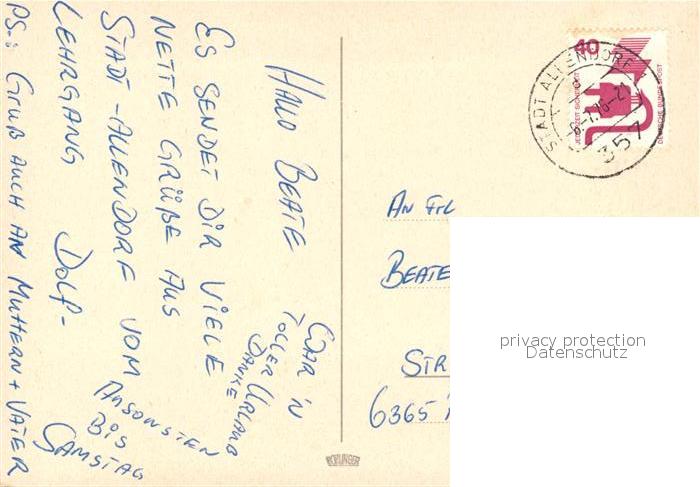 HALLO BEATE
ES SENDET DIR VIELE
NETTE GRÜßE AUS
STADT-ALLENDORF VOM
LEHRGANG DOLF-
PS.: GRUß AUCH AN MUTTERN + VATER
WAR 'N
TOLLER URLAUB
DANKE
ANSONSTEN
BIS
SAMSTAG
AN FRL
BEATE
STR
6365
40
JEDERZEIT SICHERHEIT
DEUTSCHE BUNDESPOST
STADT ALLENDORF 1
357
privacy protection
Datenschutz